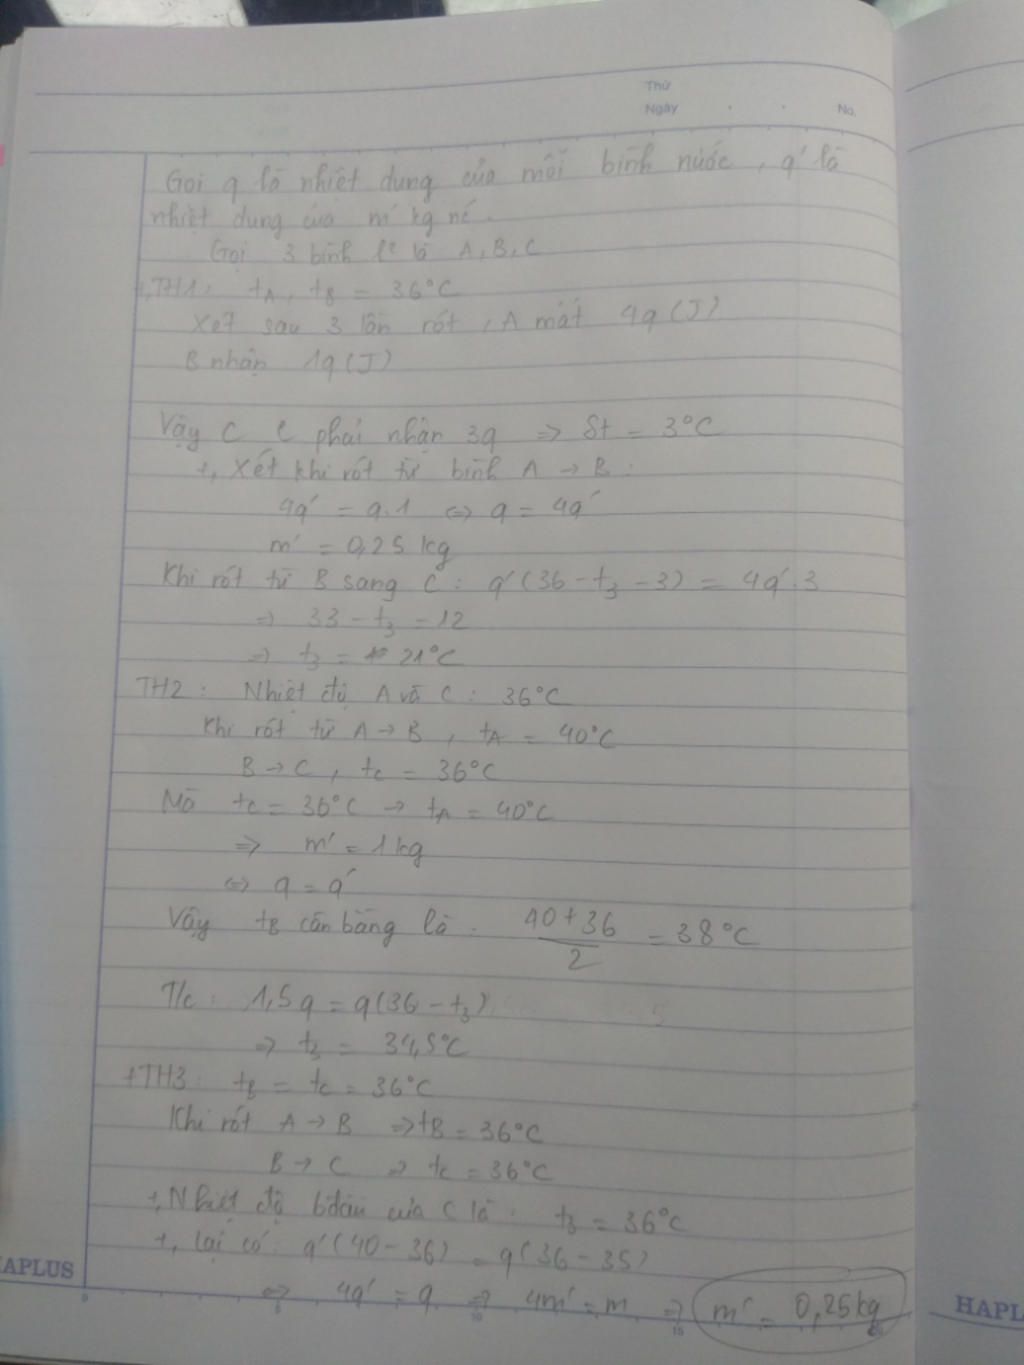 Thứ
Ngày
No.
Gọi q là nhiệt dung của mỗi bình nước, q' là
nhiệt dung của m' kg nc.
Gọi 3 bình lll là A, B, C
+, TH1: tA, tB = 36°C
Xét sau 3 lần rót, A mất 4q (J)
B nhận 1q (J)
Vậy C phải nhận 3q => δt = 3°C
+, Xét khi rót từ bình A → B:
4q' = q.1 <=> q = 4q'
m' = 0,25 kg
Khi rót từ B sang C: q'(36 - t3 - 3) = 4q'.3
=> 33 - t3 = 12
=> t3 = 21°C
TH2: Nhiệt độ A và C: 36°C
Khi rót từ A → B, tA = 40°C
B → C, tC = 36°C
Mà tC = 36°C → tA = 40°C
=> m' = 1kg
<=> q = q'
Vậy tB cân bằng là: 40+36/2 = 38°C
T/c: 1,5q = q(36 - t3)
=> t3 = 34,5°C
+TH3: tB = tC = 36°C
Khi rót A → B => tB = 36°C
B → C => tC = 36°C
+, Nhiệt độ bđầu của C là: t3 = 36°C
+, lại có: q'(40 - 36) = q(36 - 35)
<=> 4q' = q => 4m' = m => m' = 0,25kg
HAPLUS
HAPL